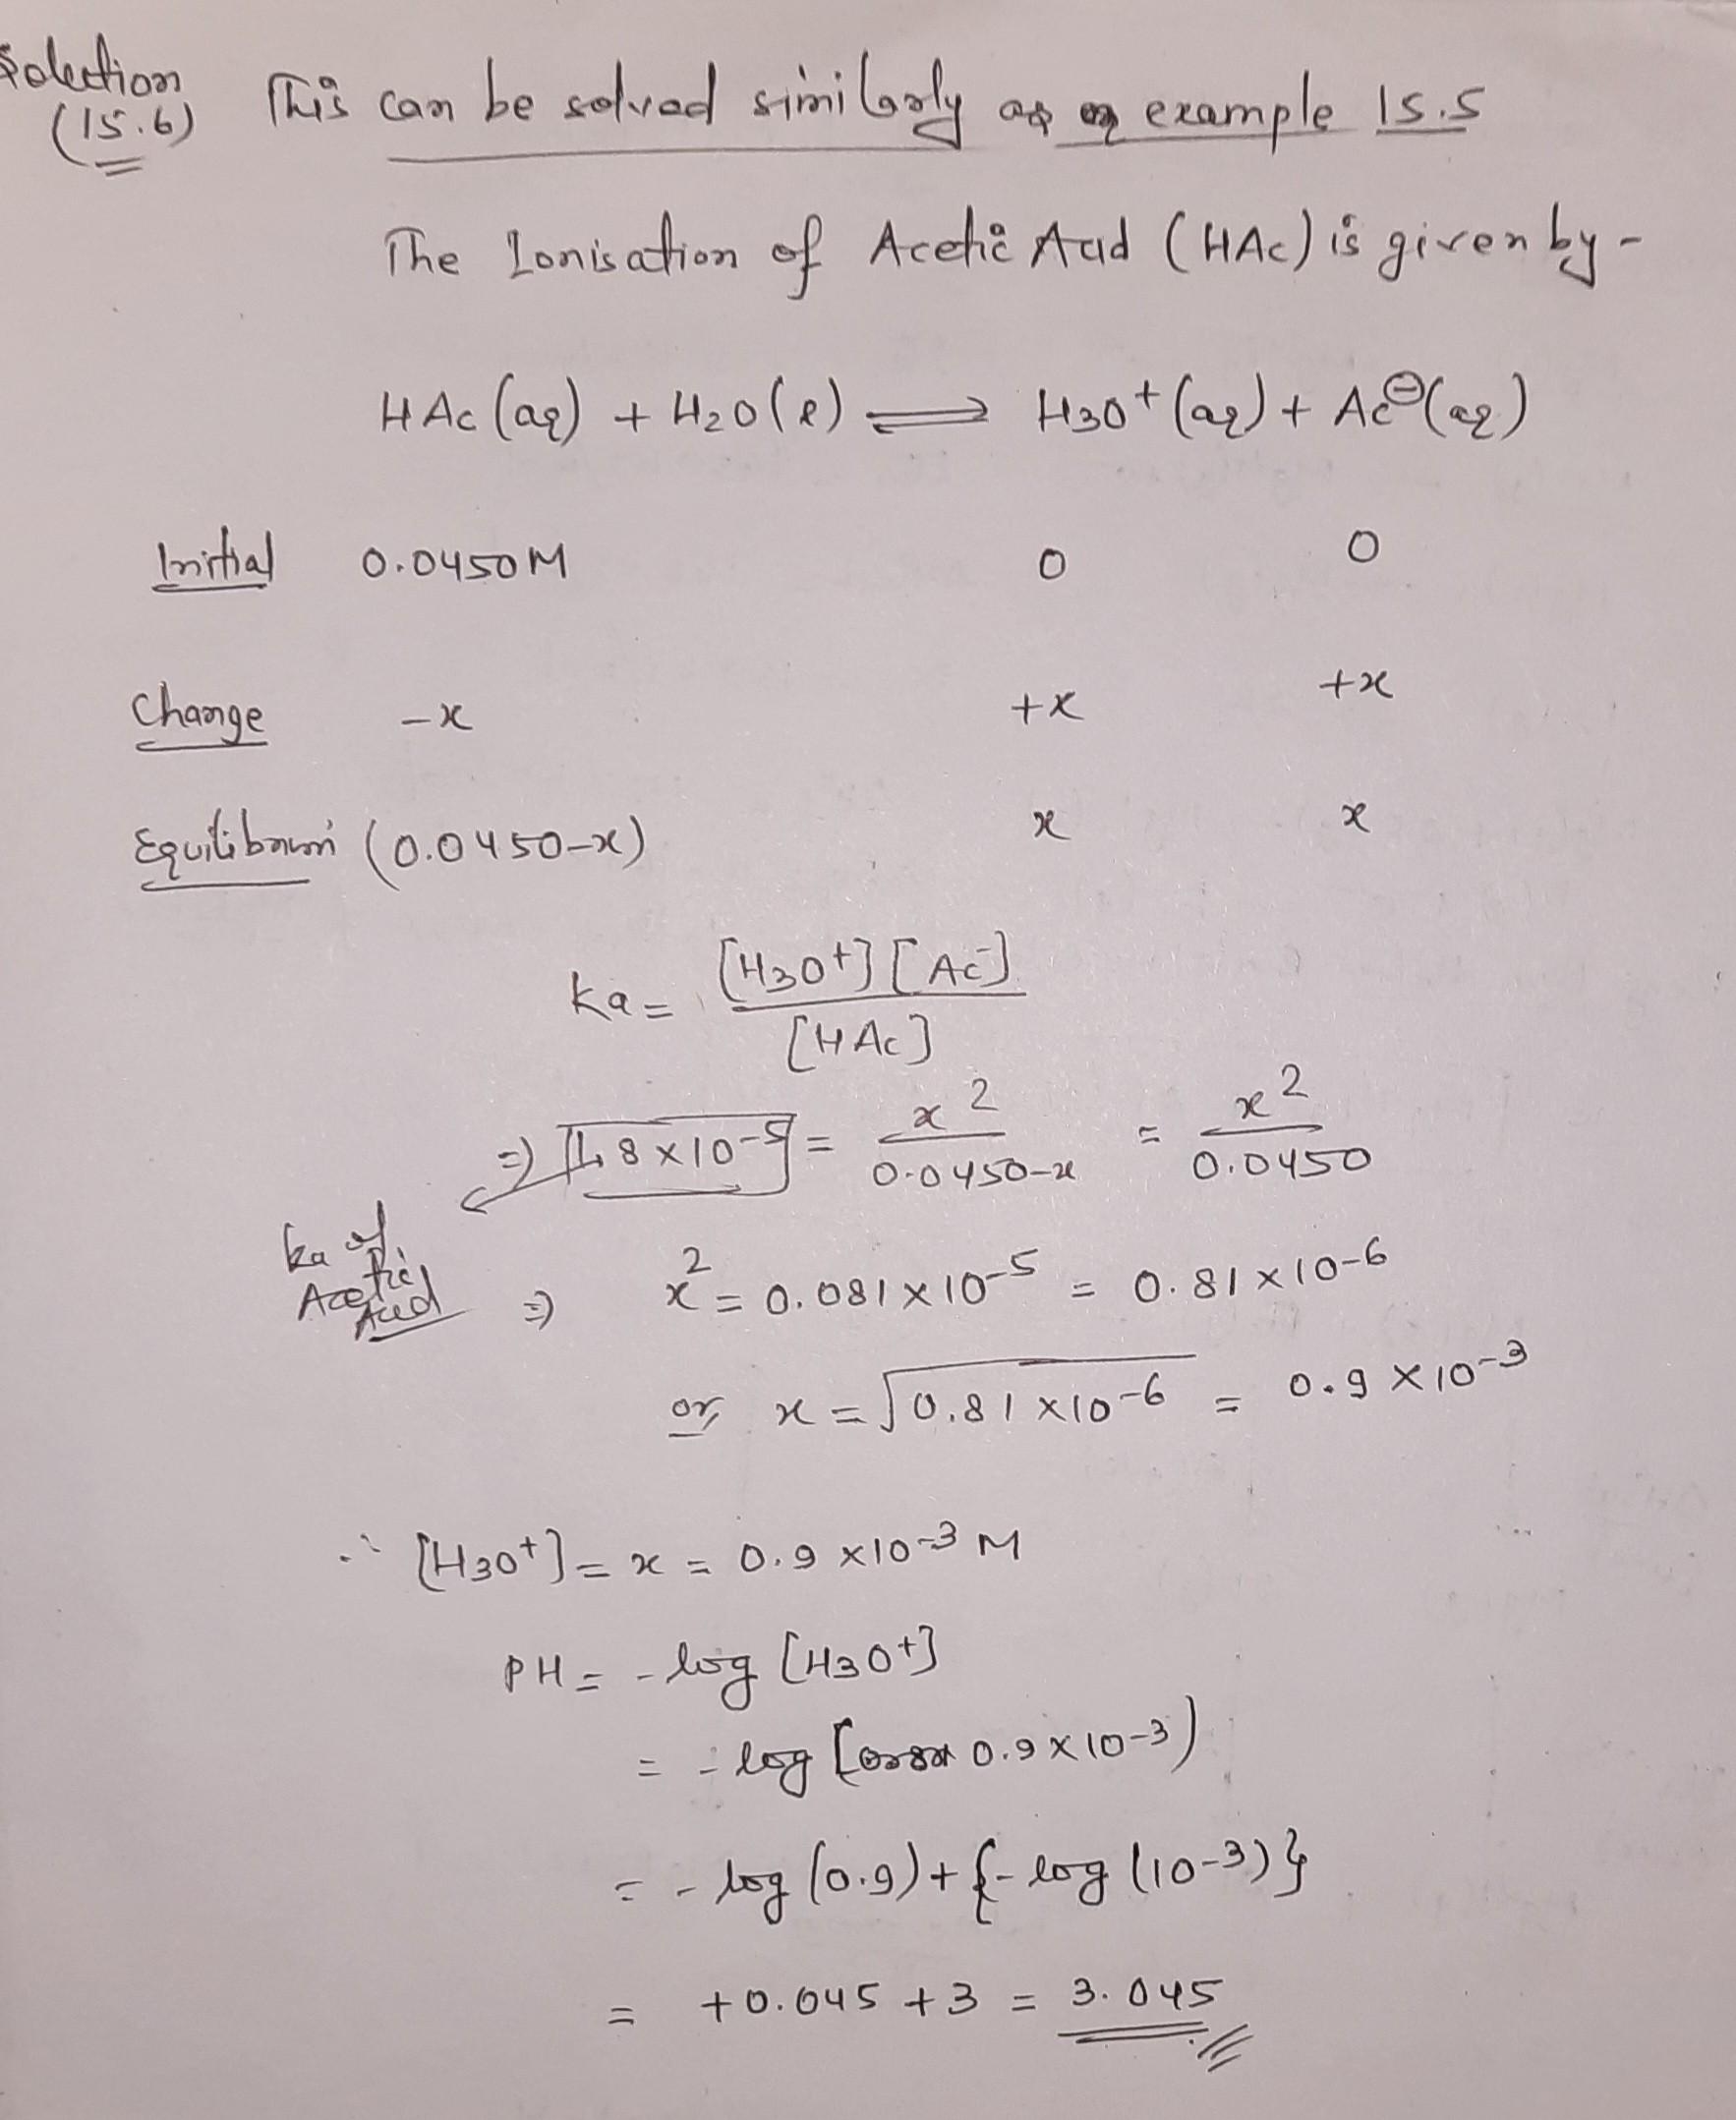 Solution
(15.6)
This can be solved similarly as example 15.5
The Ionisation of Acetic Acid (HAc) is given by -
HAc (aq) + H2O(l) ⇌ H3O+ (aq) + Ac⊖(aq)
Initial 0.0450M 0 0
Change -x +x +x
Equilibrium (0.0450-x) x x
Ka = [H3O+] [Ac-] / [HAc]
⇒ 1.8 × 10-5 = x2 / 0.0450-x = x2 / 0.0450
Ka of
Acetic
Acid
⇒ x2 = 0.081 × 10-5 = 0.81 × 10-6
or, x = √0.81 × 10-6 = 0.9 × 10-3
∴ [H3O+] = x = 0.9 × 10-3 M
PH = - log [H3O+]
= - log [0.9 × 10-3)
= - log (0.9) + {- log (10-3)}
= +0.045 + 3 = 3.045